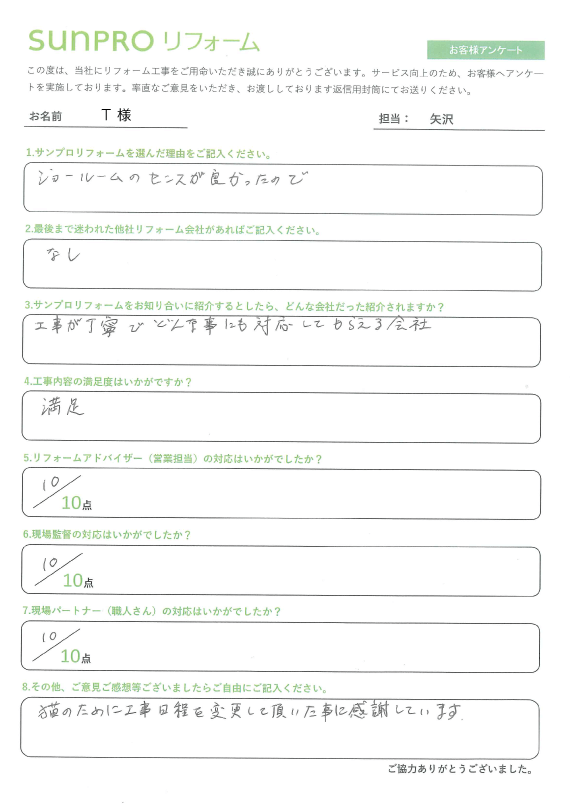 SUNPRO リフォーム
お客様アンケート
この度は、当社にリフォーム工事をご用命いただき誠にありがとうございます。サービス向上のため、お客様へアンケー
トを実施しております。率直なご意見をいただき、お渡ししております返信用封筒にてお送りください。
お名前 T 様 担当： 矢沢
1.サンプロリフォームを選んだ理由をご記入ください。
ショールームのセンスが良かったので
2.最後まで迷われた他社リフォーム会社があればご記入ください。
なし
3.サンプロリフォームをお知り合いに紹介するとしたら、どんな会社だった紹介されますか？
工事が丁寧でどんな事にも対応してもらえる会社
4.工事内容の満足度はいかがですか？
満足
5.リフォームアドバイザー（営業担当）の対応はいかがでしたか？
10
10点
6.現場監督の対応はいかがでしたか？
10
10点
7.現場パートナー（職人さん）の対応はいかがでしたか？
10
10点
8.その他、ご意見ご感想等ございましたらご自由にご記入ください。
猫のために工事日程を変更して頂いた事に感謝しています.
ご協力ありがとうございました。